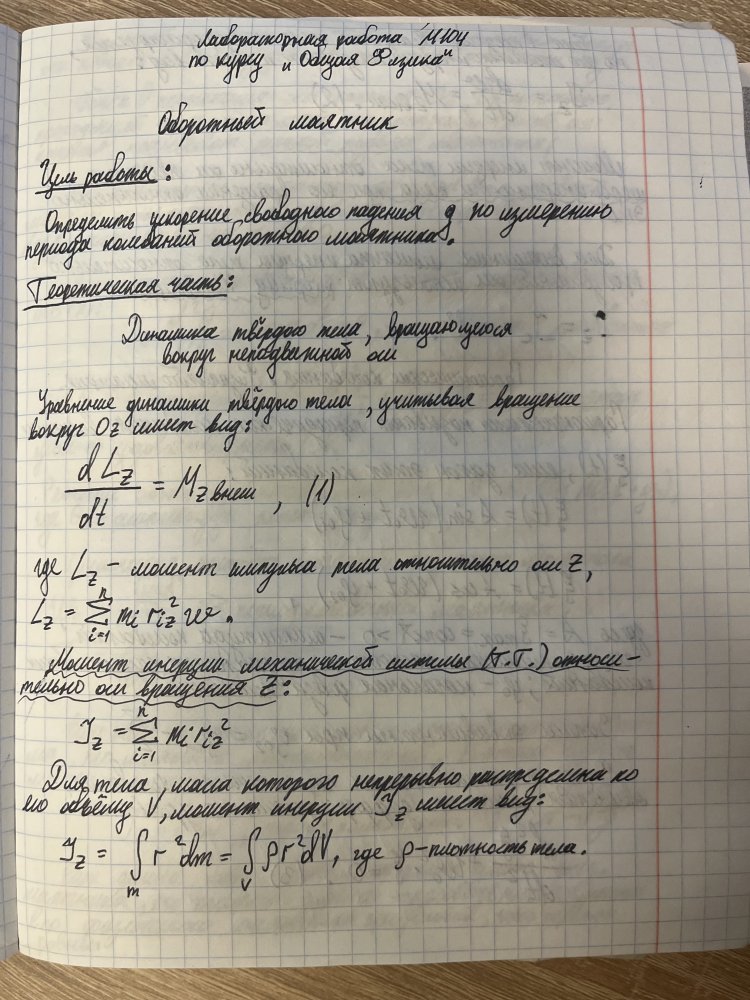 Лабораторная работа М104
по курсу "Общая Физика"
Оборотный маятник
Цель работы:
Определить ускорение свободного падения g по измерению
периода колебаний оборотного маятника.
Теоретическая часть:
Динамика твёрдого тела, вращающегося
вокруг неподвижной оси
Уравнение динамики твёрдого тела, учитывая вращение
вокруг Oz имеет вид:
dLz/dt = Mz внеш, (1)
где Lz – момент импульса тела относительно оси Z,
Lz = ∑ᵢ₌₁ⁿ mᵢ rᵢz² ω.
Момент инерции механической системы (т.т.) относи-
тельно оси вращения Z:
Jz = ∑ᵢ₌₁ⁿ mᵢ rᵢz²
Для тела, масса которого непрерывно распределена по
его объёму V, момент инерции Jz имеет вид:
Jz = ∫ₘ r² dm = ∫ᵥ ρr² dV, где ρ – плотность тела.